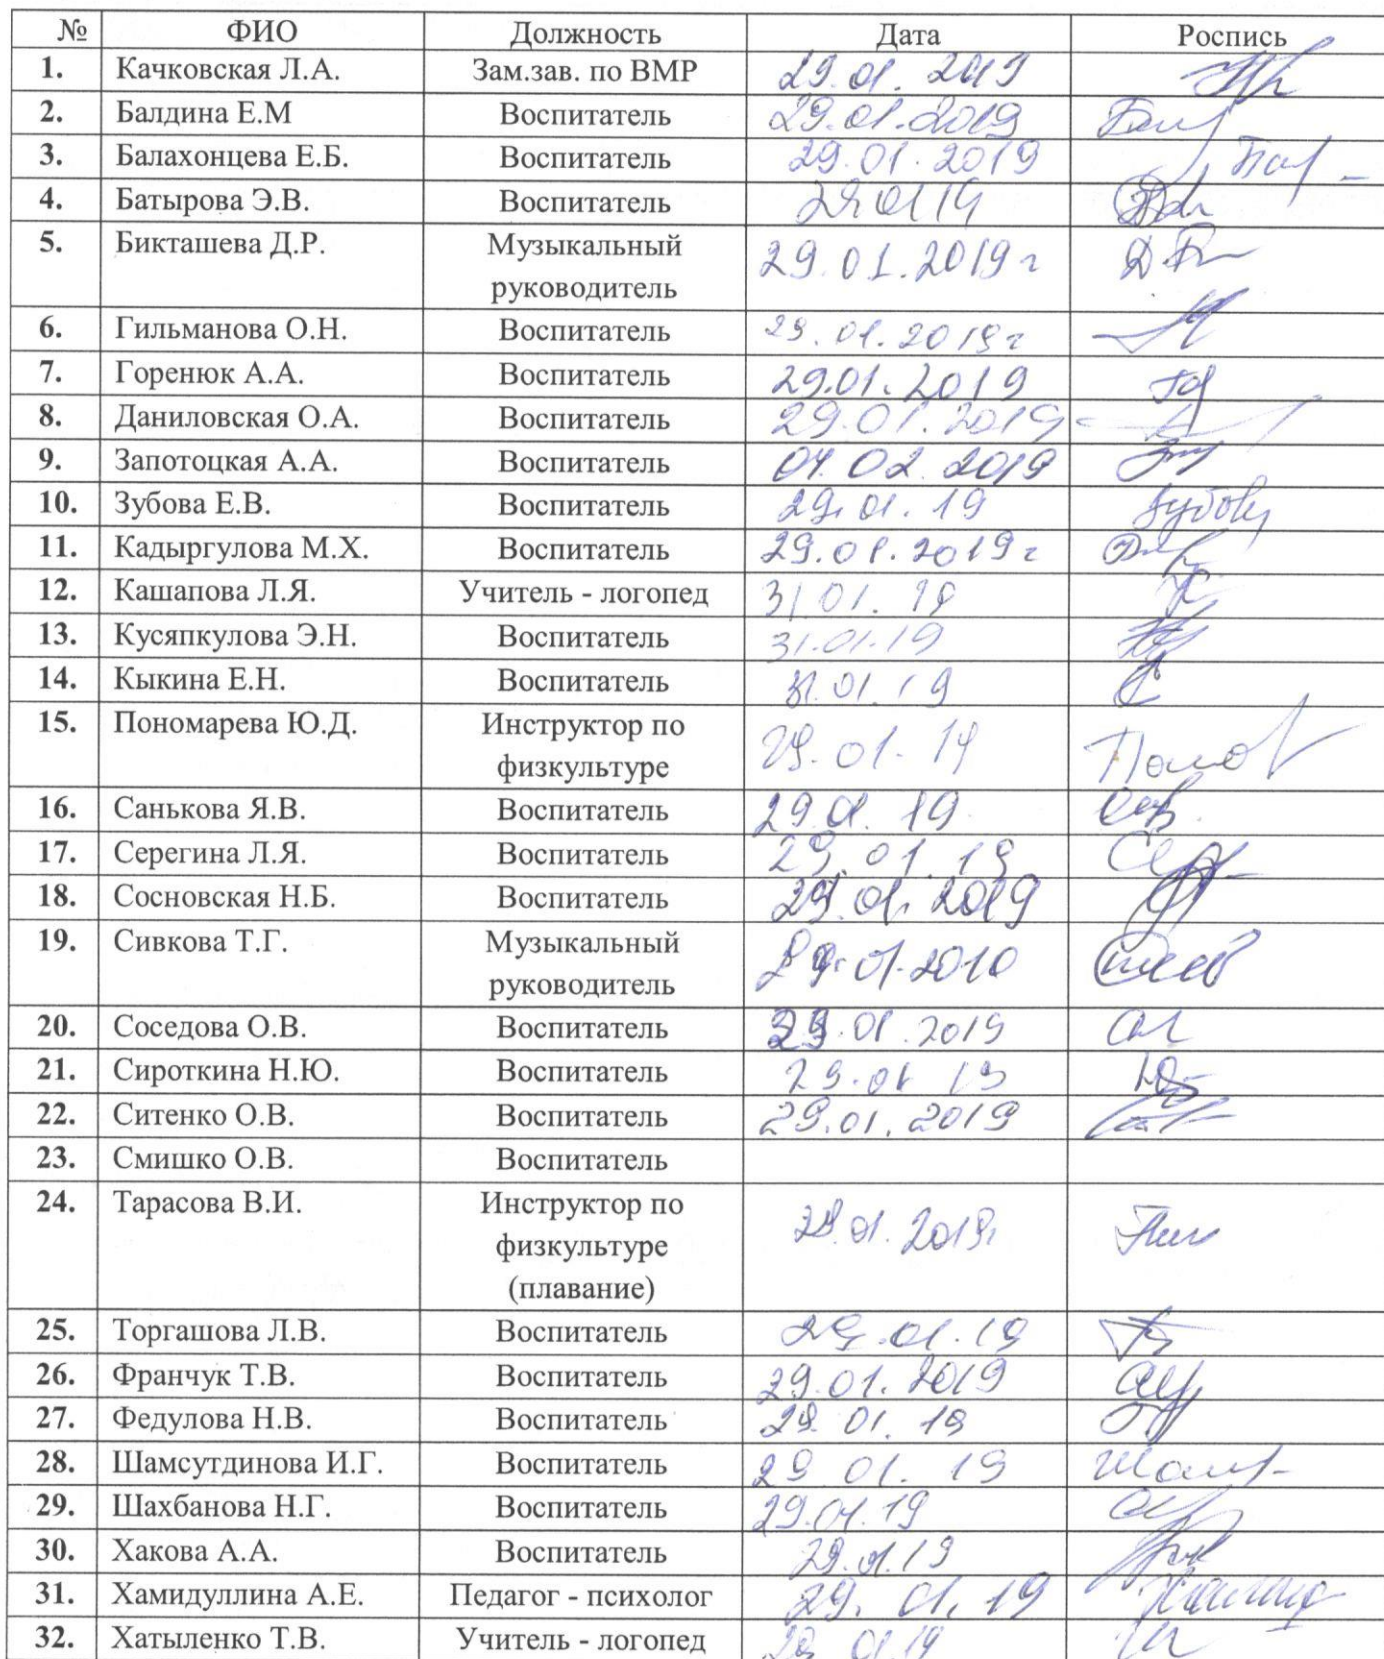 № ФИО Должность Дата Роспись
1. Качковская Л.А. Зам.зав. по ВМР 29.01.2019
2. Балдина Е.М Воспитатель 29.01.2019
3. Балахонцева Е.Б. Воспитатель 29.01.2019
4. Батырова Э.В. Воспитатель
5. Бикташева Д.Р. Музыкальный 29.01.2019 г
руководитель
6. Гильманова О.Н. Воспитатель 29.01.2019 г
7. Горенюк А.А. Воспитатель 29.01.2019
8. Даниловская О.А. Воспитатель 29.01.2019
9. Запотоцкая А.А. Воспитатель 04.02.2019
10. Зубова Е.В. Воспитатель 29.01.19
11. Кадыргулова М.Х. Воспитатель 29.01.2019 г
12. Кашапова Л.Я. Учитель - логопед 31.01.19
13. Кусяпкулова Э.Н. Воспитатель 31.01.19
14. Кыкина Е.Н. Воспитатель 31.01.19
15. Пономарева Ю.Д. Инструктор по 29.01.19
физкультуре
16. Санькова Я.В. Воспитатель 29.01.19
17. Серегина Л.Я. Воспитатель 29.01.19
18. Сосновская Н.Б. Воспитатель 29.01.2019
19. Сивкова Т.Г. Музыкальный
руководитель
20. Соседова О.В. Воспитатель 29.01.2019
21. Сироткина Н.Ю. Воспитатель 29.01.19
22. Ситенко О.В. Воспитатель 29.01.2019
23. Смишко О.В. Воспитатель
24. Тарасова В.И. Инструктор по
физкультуре
(плавание)
25. Торгашова Л.В. Воспитатель 29.01.19
26. Франчук Т.В. Воспитатель 29.01.2019
27. Федулова Н.В. Воспитатель 29.01.19
28. Шамсутдинова И.Г. Воспитатель 29.01.19
29. Шахбанова Н.Г. Воспитатель 29.01.19
30. Хакова А.А. Воспитатель 29.01.19
31. Хамидуллина А.Е. Педагог - психолог 29.01.19
32. Хатыленко Т.В. Учитель - логопед 29.01.19